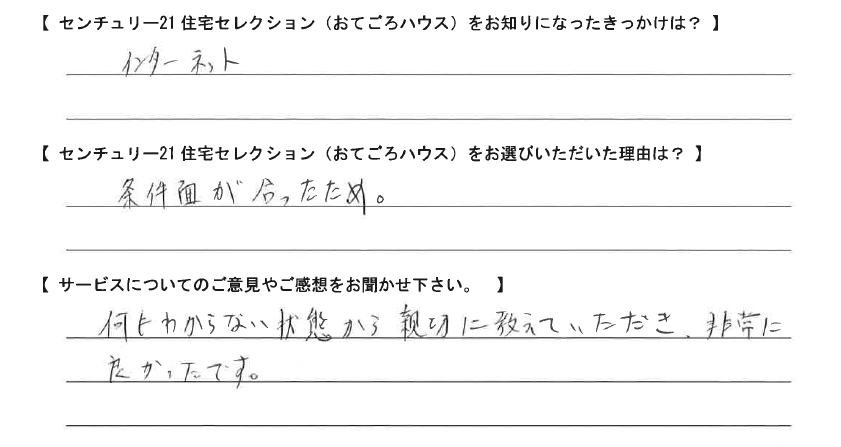 【 センチュリー21 住宅セレクション（おてごろハウス）をお知りになったきっかけは？ 】
インターネット
【 センチュリー21 住宅セレクション（おてごろハウス）をお選びいただいた理由は？ 】
条件面が合ったため。
【 サービスについてのご意見やご感想をお聞かせ下さい。 】
何もわからない状態から親切に教えていただき、非常に
良かったです。